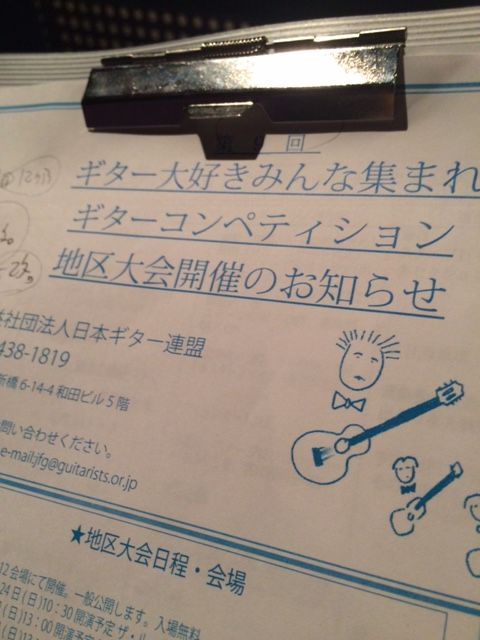 第 9 回
ギター大好きみんな集まれ
ギターコンペティション
地区大会開催のお知らせ
社団法人日本ギター連盟
438-1819
新橋 6-14-4 和田ビル 5 階
問い合わせください。
e-mail:jfg@guitarists.or.jp
★地区大会日程・会場
12 会場にて開催。一般公開します。入場無料
24 日 (日) 10：30 開演予定 ザ・ル
(日) 13：00 開演予定